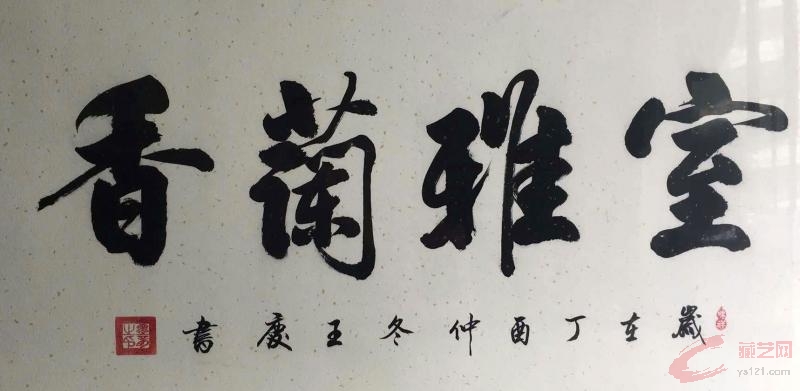 室雅蘭香
歲在丁酉仲冬王慶書
藏艺网
ys121.com